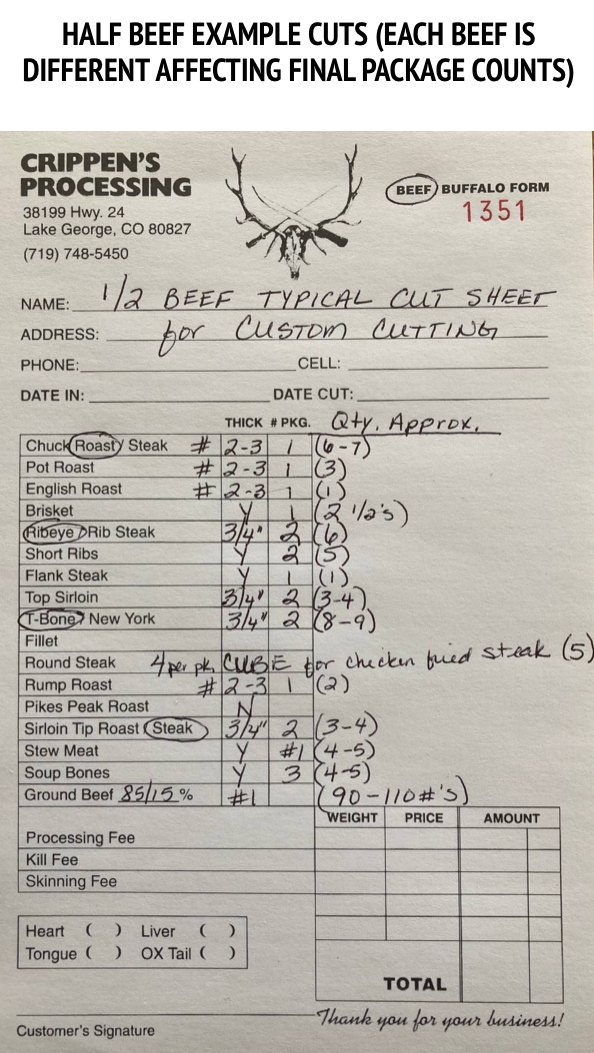 HALF BEEF EXAMPLE CUTS (EACH BEEF IS
DIFFERENT AFFECTING FINAL PACKAGE COUNTS)
CRIPPEN'S
PROCESSING
38199 Hwy. 24
Lake George, CO 80827
(719) 748-5450
BEEF BUFFALO FORM
1351
NAME: 1/2 BEEF TYPICAL CUT SHEET
ADDRESS: for CUSTOM CUTTING
PHONE: CELL:
DATE IN: DATE CUT:
THICK # PKG. Qty. Approx.
Chuck Roast / Steak # 2-3 1 (6-7)
Pot Roast # 2-3 1 (3)
English Roast # 2-3 1 (1)
Brisket Y 1 (2 1/2's)
Ribeye / Rib Steak 3/4" 2 (6)
Short Ribs Y 2 (5)
Flank Steak Y 1 (1)
Top Sirloin 3/4" 2 (3-4)
T-Bone / New York 3/4" 2 (8-9)
Fillet
Round Steak 4 per pk, CUBE for chicken fried steak (5)
Rump Roast # 2-3 1 (2)
Pikes Peak Roast N
Sirloin Tip Roast / Steak 3/4" 2 (3-4)
Stew Meat Y #1 (4-5)
Soup Bones Y 3 (4-5)
Ground Beef 85/15 % #1 (90-110#'s)
WEIGHT PRICE AMOUNT
Processing Fee
Kill Fee
Skinning Fee
Heart ( ) Liver ( )
Tongue ( ) OX Tail ( )
TOTAL
Thank you for your business!
Customer's Signature